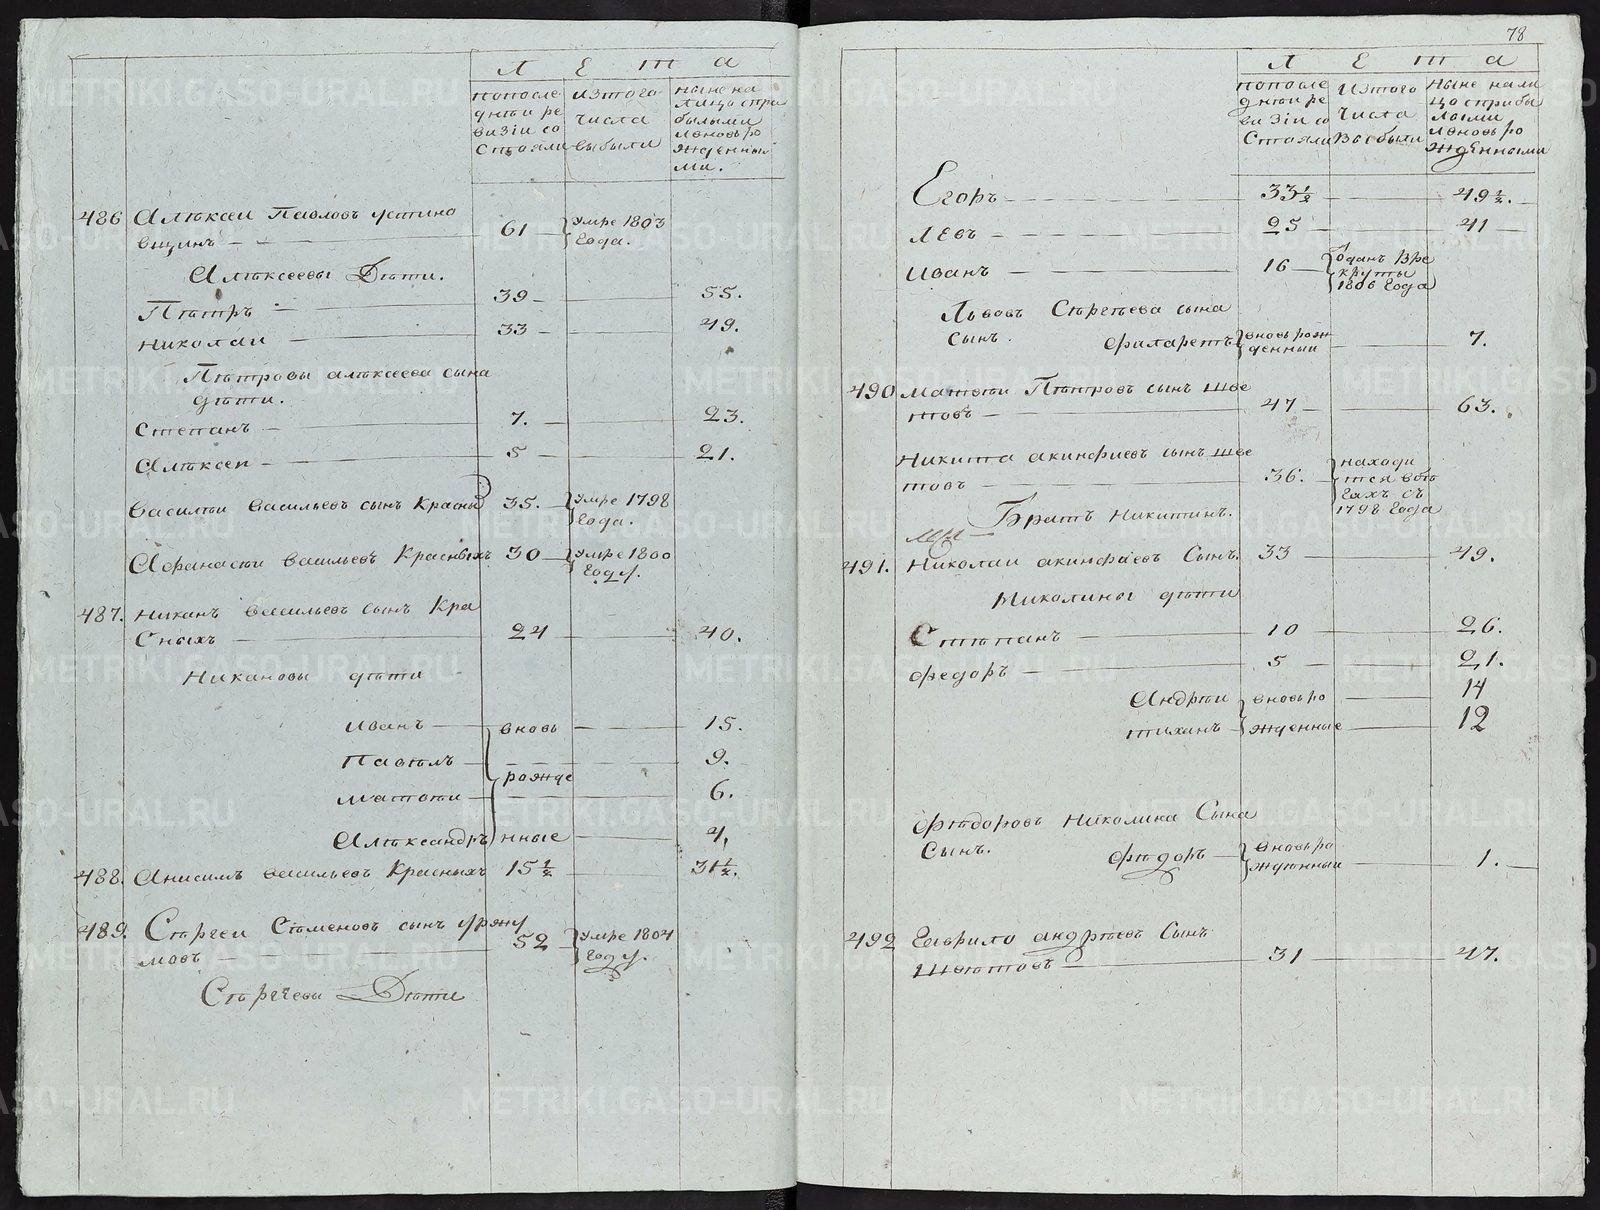 Л Е т а
попосле
днѣи ре
визіи со
стояли
изтого
числа
выбыли
ныне на
лицо спри
былыми
ивновь ро
жденны
ми.
486 Алѣксеи Павловъ устино
вщинъ 61 умре 1803
года.
Алѣксеевы Дѣти.
Пѣтръ 39 55.
Николаи 33 49.
Пѣтровы алѣксеева сына
дѣти.
Степанъ 7. 23.
Алѣксеи 5 21.
Василѣи васильевъ сынъ Красны 35. умре 1798
года.
Афанасѣи васильевъ Красныхъ 30 умре 1800
году.
487. Никанъ васильевъ сынъ Кра
сныхъ 24 40.
Никановы дѣти
Иванъ вновь 15.
Павѣлъ 9.
рожде
Матвѣи 6.
Алѣксандръ нные 4.
488. Анисимъ васильевъ Красныхъ 15½ 31½.
489. Сѣргеи Сѣменовъ сынъ
мовъ 52 умре 1804
году.
Сѣргѣевы Дѣти
78
Л Е т а
попосле
днѣи ре
визіи со
стояли
изтого
числа
выбыли
ныне нали
цо сприбы
лыми
ивновь ро
жденными
Егоръ 33½ 49½.
Левъ 25 41
Иванъ 16 Оданъ вре
круты
1806 года
Львовъ Сѣргѣева сына
сынъ. Филаретъ вновь рож
денныи 7.
490 Матвѣи Пѣтровъ сынъ шве
товъ 47 63.
Никита акинфиевъ сынъ шве
товъ 36. находи
тся вбѣ
гахъ съ
1798 года
Братъ Никитинъ.
491. Николаи акинфаевъ Сынъ. 33 49.
Николины дѣти
Стѣпанъ 10 26.
Федоръ 5 21.
Андрѣи вновь ро 14
тиханъ жденные 12
Фѣдоровъ Николина Сына
Сынъ. Фѣдоръ вновь ро
жденныи 1.
492 Гаврило андрѣевъ Сынъ
Швѣтовъ 31 47.
METRIKI.GASO-URAL.RU